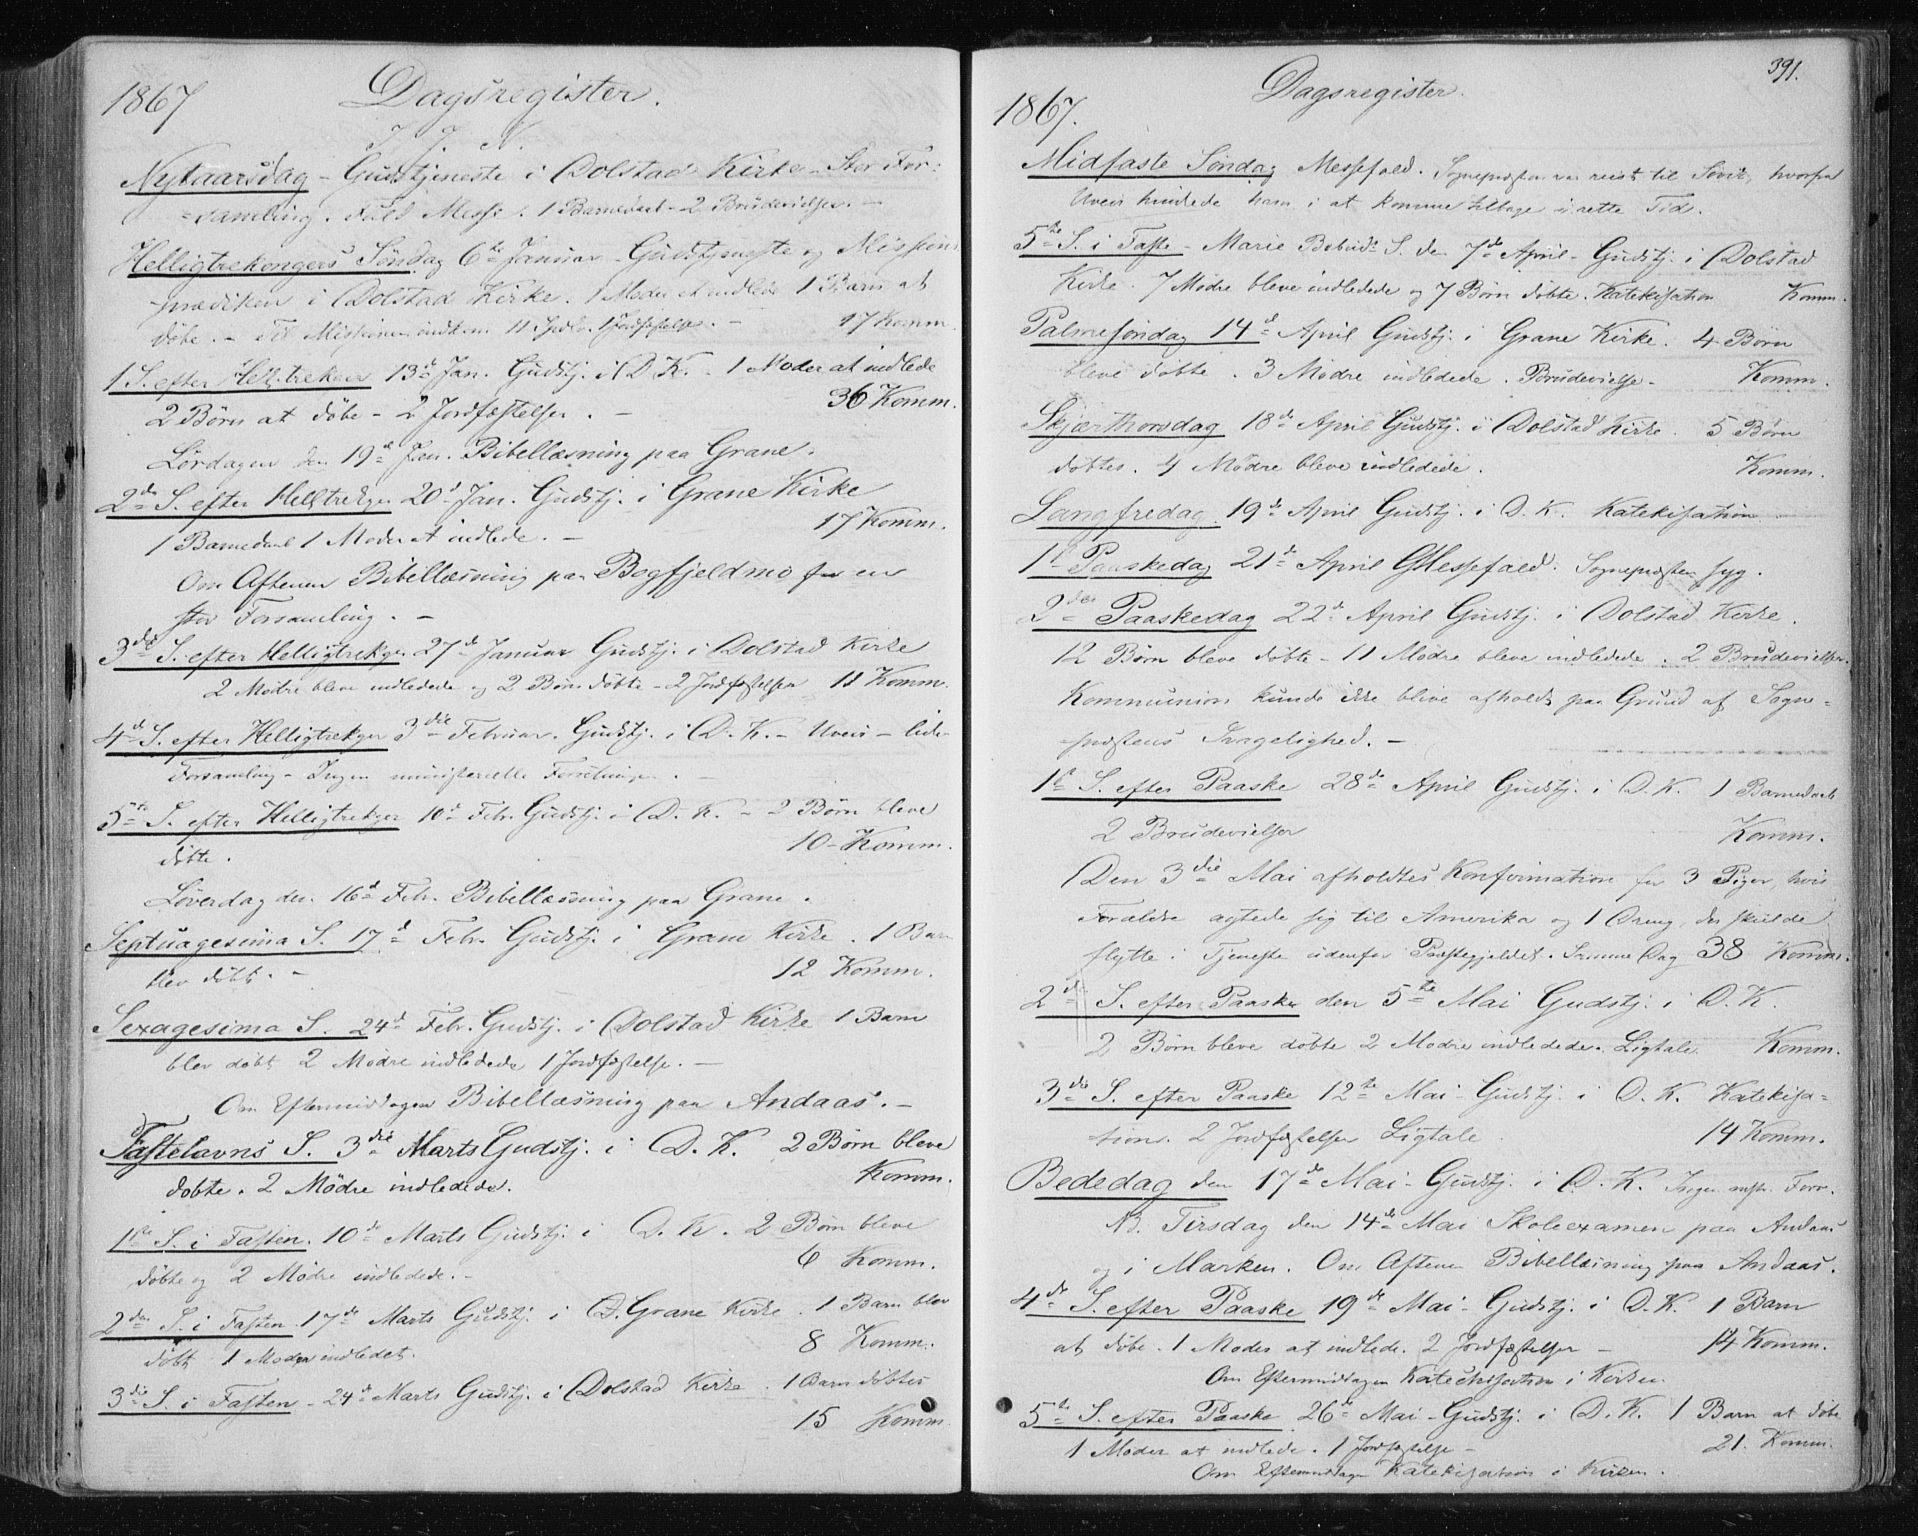 1867
Dagsregister.
J. J. N.
Nytaarsdag - Gudstjeneste i Dolstad Kirke - Stor For-
-samling. Fuld Messe. 1 Barnedaab - 2 Brudevielser. -
Helligtrekongers Søndag 6te Januar Gudstjeneste og Missions
prædiken i Dolstad Kirke. 1 Moder at indlede 1 Barn at
døbe. - Til Missionen indkom 11 Spdlr. 1 Jordfæstelse. - 17 Komm.
1 S. efter Hell.trekger 13de Jan. Gudstj. i D. K. - 1 Moder at indlede
2 Børn at døbe - 2 Jordfæstelser. - 36 Komm.
Lørdagen den 19de Jan. Bibellæsning paa Grane.
2den S. efter Helltrekger 20de Jan. Gudstj. i Grane Kirke
1 Barnedaab 1 Moder at indlede. - 17 Komm.
Om Aftenen Bibellæsning paa Bogfjeldmo for en
stor Forsamling. -
3die S. efter Helligtrekger 27de Januar Gudstj. i Dolstad Kirke
2 Mødre bleve indledede og 2 Børn døbte - 2 Jordfæstelser 11 Komm.
4de S. efter Helligtrekger 3die Februar. Gudstj. i D. K. - Uveir - lide
Forsamling - Ingen ministerielle Forretninger. -
5te S. efter Helligtrekger 10de Febr. Gudstj. i D. K. - 2 Børn bleve
døbte. 10 - Komm.
Løverdag den 16de Febr. Bibellæsning paa Grane.
Septuagesima S. 17de Febr. Gudstj. i Grane Kirke. 1 Barn
blev døbt. - 12 Komm.
Sexagesima S. 24de Febr. Gudstj. i Dolstad Kirke 1 Barn
blev døbt 2 Mødre indledede 1 Jordfæstelse. -
Om Eftermiddagen Bibellæsning paa Andaas. -
Fastelavns S. 3die Marts Gudstj. i D. K. 2 Børn bleve
døbte. 2 Mødre indledede. Komm.
1ste S. i Fasten. 10de Marts Gudstj. i D. K. 2 Børn bleve
døbte og 2 Mødre indledede. - 6 Komm.
2den S. i Fasten 17de Marts Gudstj. i Grane Kirke. 1 Barn blev
døbt 1 Moder indledet. 8 Komm.
3die S. i Fasten - 24de Marts Gudstj. i Dolstad Kirke. 1 Barn døbtes
15 Komm.
391.
1867.
Dagsregister.
Midfaste Søndag Messefald. Sognepræsten var reist til , hvorfra
Uveir hindrede ham i at komme tilbage i rette Tid.
5te S. i Faste - Marie Bebud. S. den 7de April - Gudstj. i Dolstad
Kirke. 7 Mødre bleve indledede og 7 Børn døbte. Katekisation Komm.
Palmesøndag 14de April Gudstj. i Grane Kirke. 4 Børn
bleve døbte. 3 Mødre indledede. Brudevielse - Komm.
Skjærthorsdag 18de April Gudstj. i Dolstad Kirke. 5 Børn
døbtes. 4 Mødre bleve indledede. Komm.
Langfredag 19de April Gudstj. i D. K. Katekisation
1ste Paaskedag 21de April Messefald. Sognepræsten syg.
2den Paaskedag 22de April Gudstj. i Dolstad Kirke.
12 Børn bleve døbte - 11 Mødre bleve indledede. 2 Brudevielser.
Kommunion kunde ikke blive afholdt paa Grund af Sogne-
præstens Svagelighed. -
1ste S. efter Paaske 28de April Gudstj. i D. K. 1 Barnedaab
2 Brudevielser Komm.
Den 3die Mai afholdtes Konfirmation for 3 Piger, hvis
Forældre agtede sig til Amerika og 1 Dreng, der skulde
flytte i Tjeneste udenfor Præstegjeldet. Samme Dag 38 Komm.
2den S. efter Paaske den 5te Mai Gudstj. i D. K.
2 Børn bleve døbte 2 Mødre indledede. Ligtale Komm.
3die S. efter Paaske 12te Mai - Gudstj. i D. K. Katekisa-
tion. 2 Jordfæstelser Ligtale 14 Komm.
Bededag den 17de Mai - Gudstj. i D. K. Ingen mstr. Forr.
NB. Tirsdag den 14de Mai Skoleexamen paa Andaas
og i Marken. Om Aftenen Bibellæsning paa Andaas.
4de S. efter Paaske 19de Mai - Gudstj. i D. K. 1 Barn
at døbe. 1 Moder at indlede. 2 Jordfæstelser - 14 Komm.
Om Eftermiddagen Katechisation i Kirken.
5te S. efter Paaske 26de Mai - Gudstj. i D. K. 1 Barn at døbe
1 Moder at indlede. 1 Jordfæstelse - 21. Komm.
Om Eftermiddagen Katekisation i Kirken.